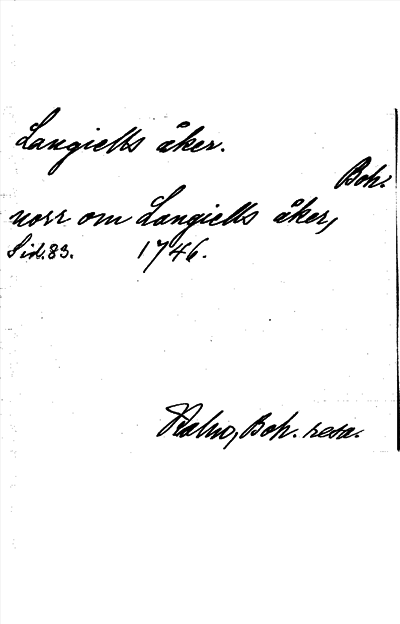 Langiells åker.
Boh.
norr om Langiells åker,
Sid. 83. 1746.
Kalm, Boh. resa.